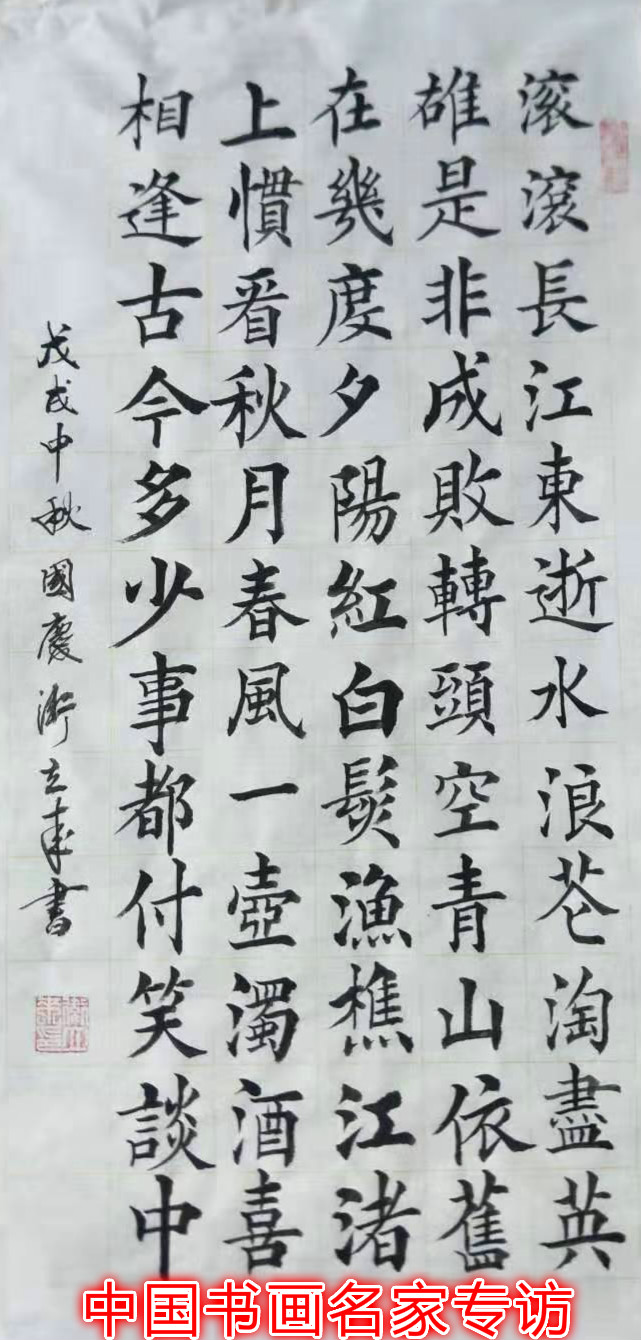 滚滾長江東逝水浪花淘盡英
雄是非成敗轉頭空青山依舊
在幾度夕陽紅白髮漁樵江渚
上慣看秋月春風一壺濁酒喜
相逢古今多少事都付笑談中
戊戌中秋國慶衛立書
中国书画名家专访